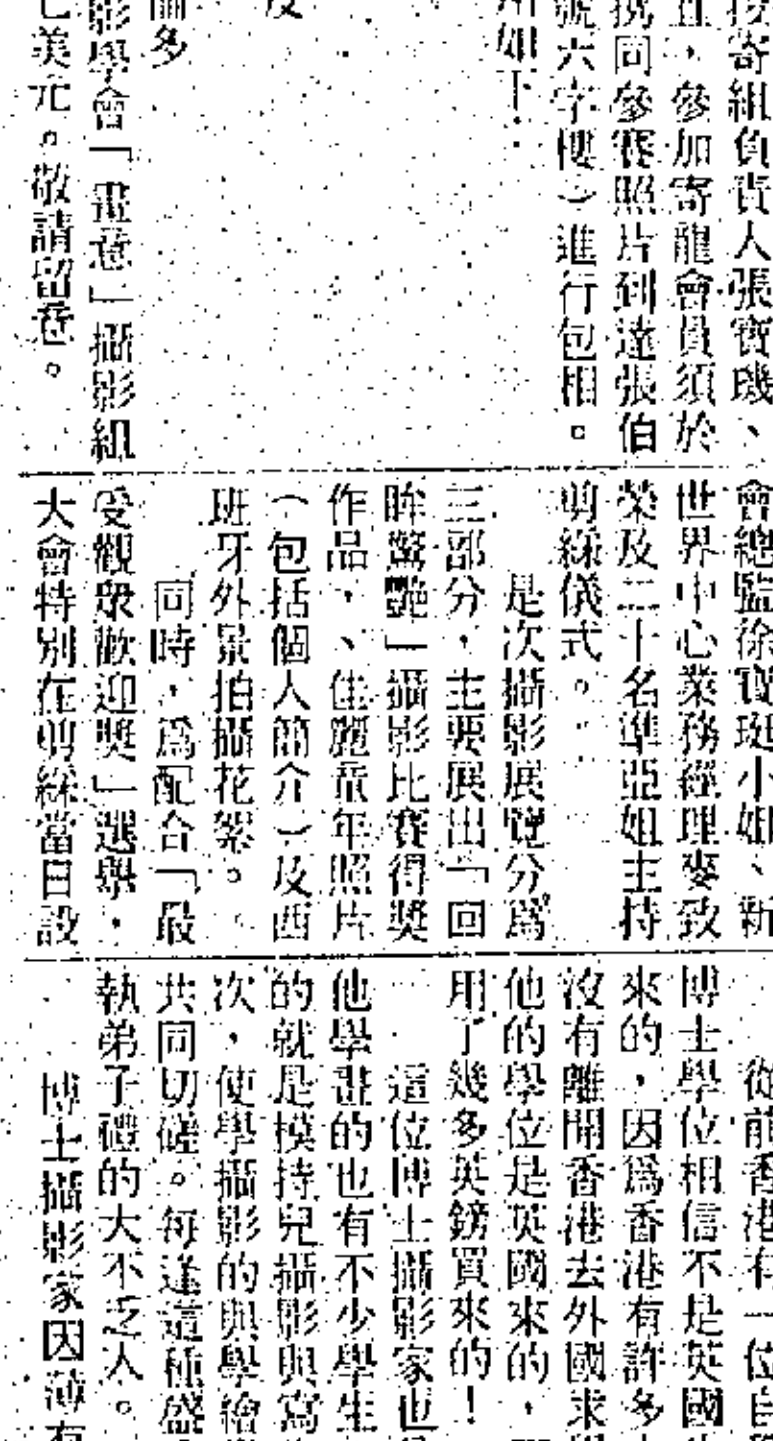 按寄組負責人張寶璣、
五，參加寄龍會員須於
携同參賽照片到達張伯
號六字樓）進行包相。
如下：
及
多
影學會「畫意」攝影組
七美元。敬請留意。
會總監徐寶珽小姐、新
世界中心業務經理麥致
榮及二十名準亞姐主持
剪綵儀式。
是次攝影展覽分爲
三部分，主要展出「回
眸驚艷」攝影比賽得獎
作品，、佳麗童年照片
（包括個人簡介）及西
班牙外景拍攝花絮。
同時，爲配合「最
受觀衆歡迎獎」選舉，
大會特別在剪綵當日設
從前香港有一位自
博士學位相信不是英國
來的，因爲香港有許多
沒有離開香港去外國求
他的學位是英國來的，
用了幾多英鎊買來的！
這位博士攝影家也
他學畫的也有不少學生
的就是模持兒攝影與寫
次，使學攝影的與學繪
共同切磋。每逢這種盛
執弟子禮的大不乏人。
博士攝影家因薄有